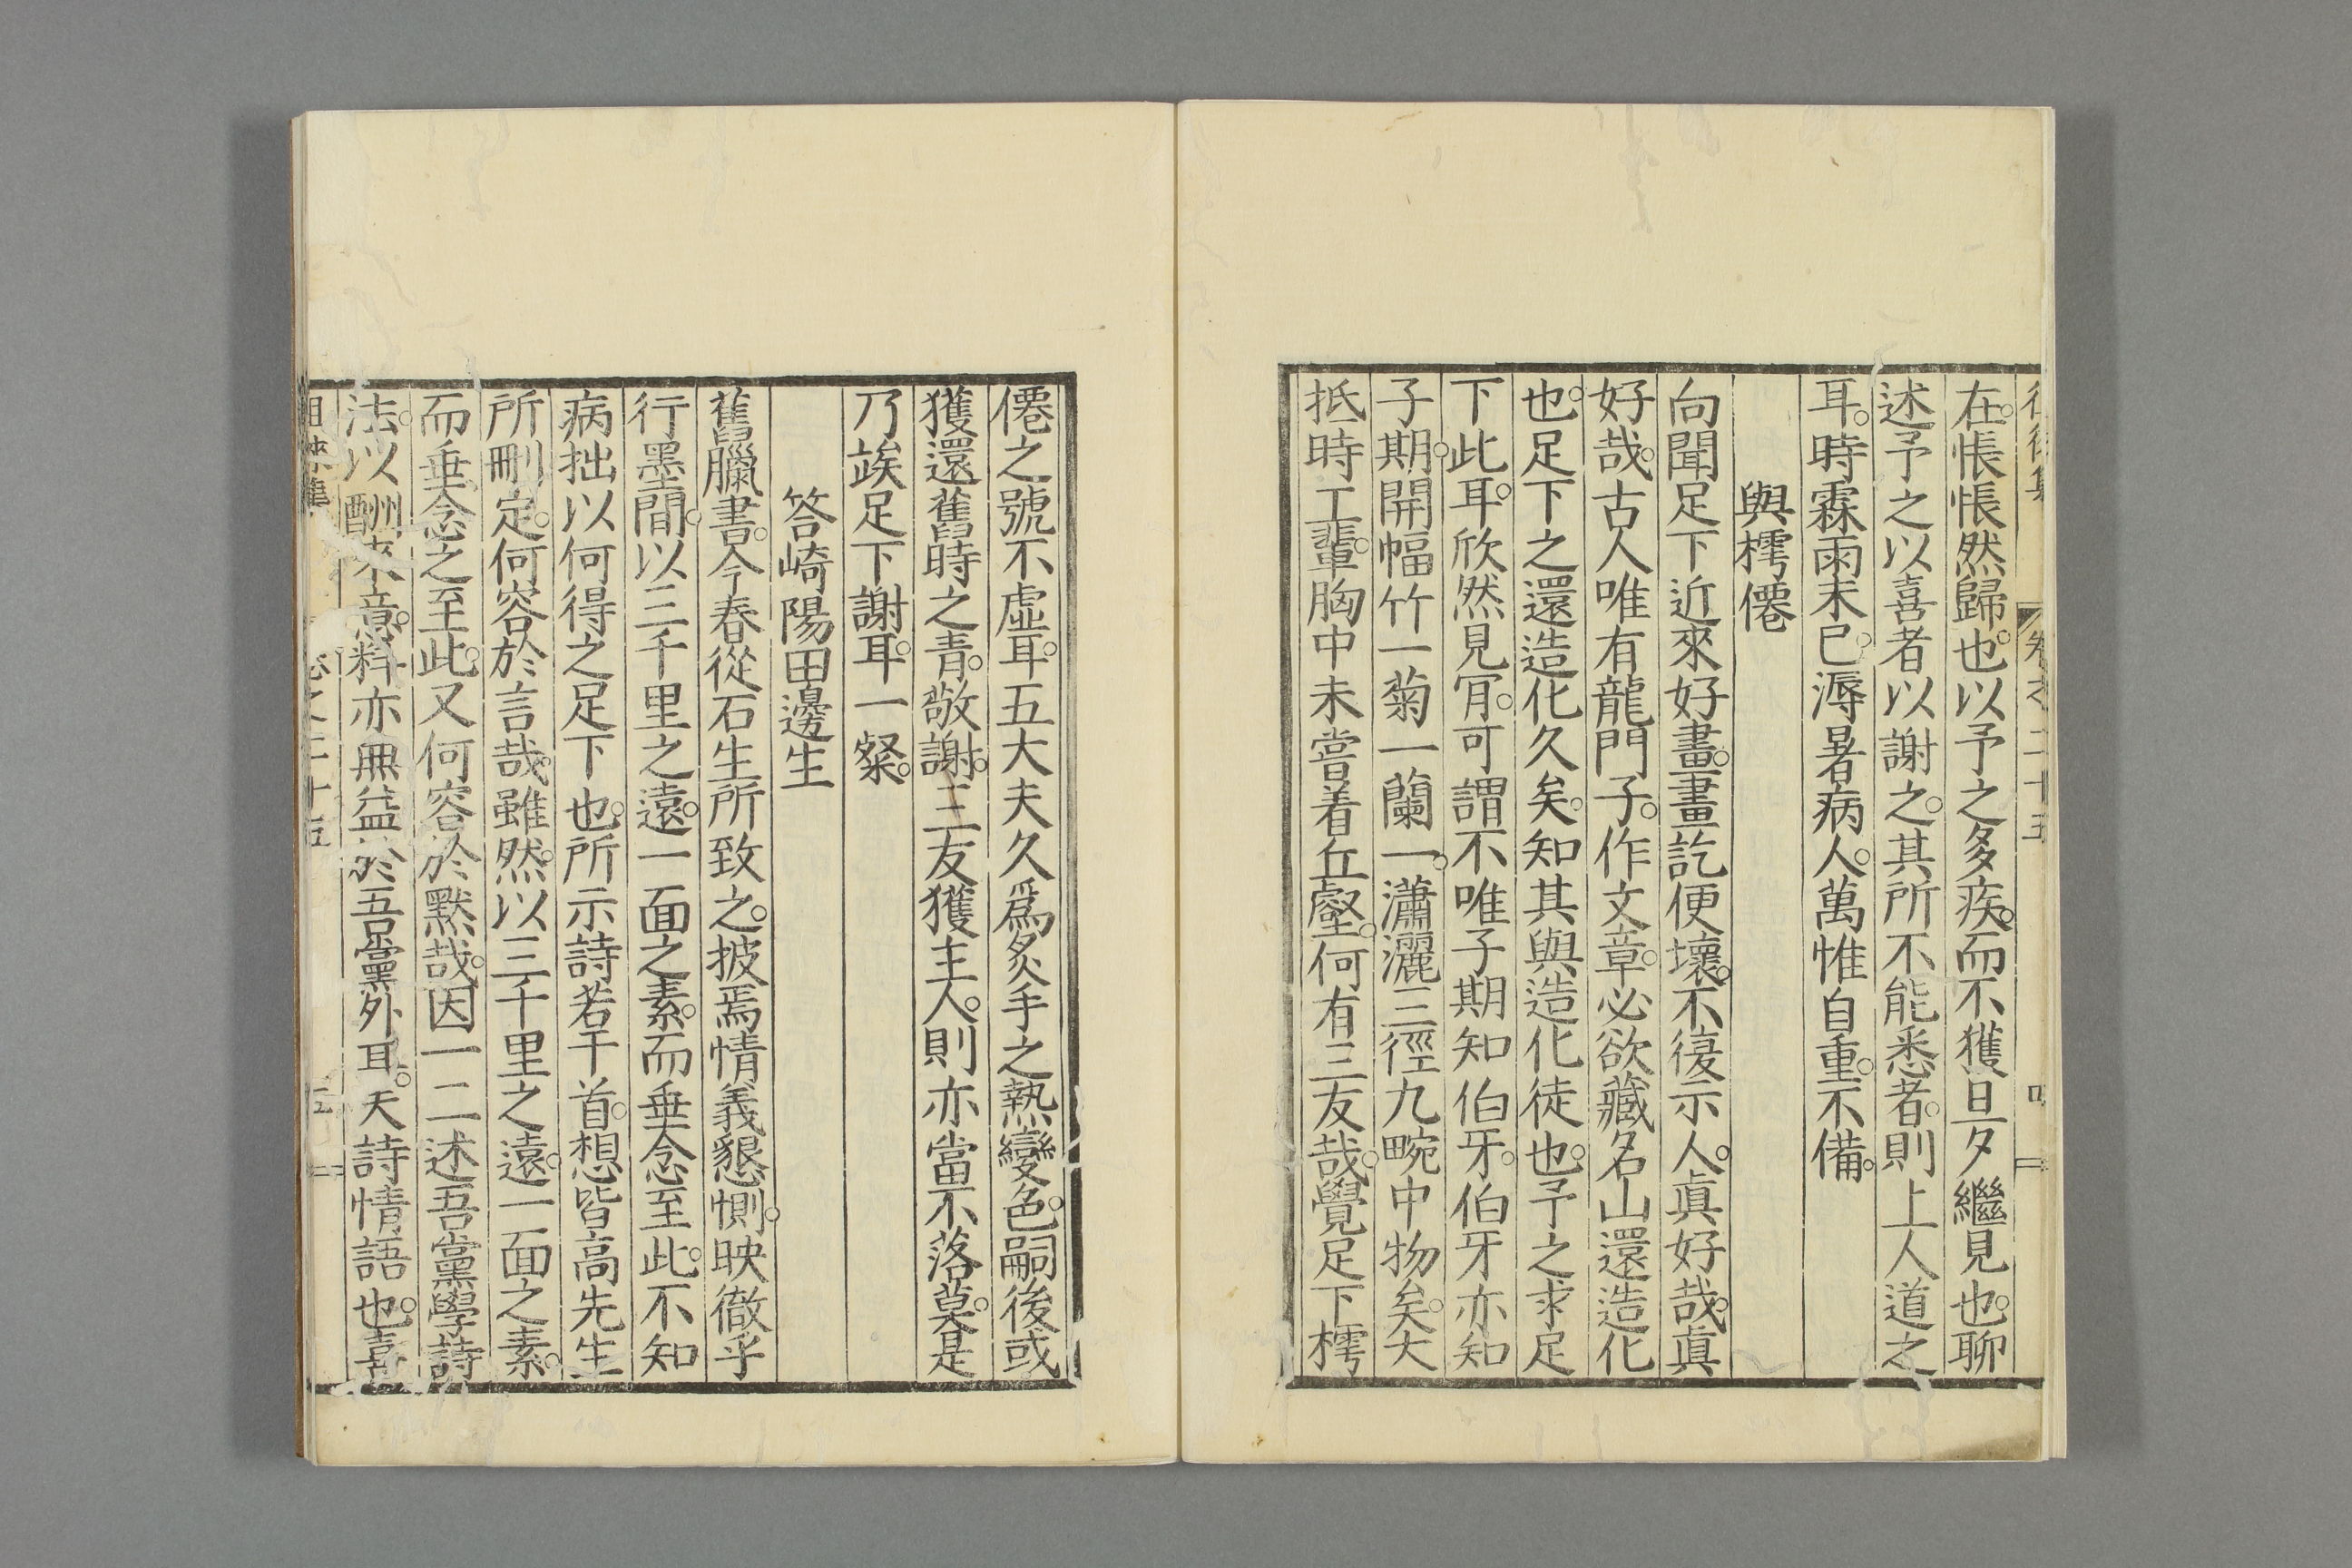 在。悵悵然歸也。以予之多疾。而不獲旦夕繼見也。聊
述予之以喜者以謝之。其所不能悉者。則上人道之
耳。時霖雨未已。溽暑病人。萬惟自重。不備。
與樗僊
向聞足下近來好畫。畫訖便壞。不復示人。眞好哉。眞
好哉。古人唯有龍門子。作文章。必欲藏名山還造化
也。足下之還造化久矣。知其與造化徒也。予之求足
下此耳。欣然見肎。可謂不唯子期知伯牙。伯牙亦知
子期。開幅竹一菊一蘭一。瀟灑三徑九畹中物矣。大
抵時工輩。胸中未嘗着丘壑。何有三友哉。覺足下樗
僊之號不虛耳。五大夫久爲炙手之熱變色。嗣後或
獲還舊時之青。敬謝。三友獲主人。則亦當不落莫。是
乃竢足下謝耳。一粲。
答崎陽田邊生
舊臘書。今春從石生所致之。披焉情義懇惻。映徹乎
行墨間。以三千里之遠。一面之素。而垂念至此。不知
病拙以何得之足下也。所示詩若干首。想皆高先生
所刪定。何容於言哉。雖然。以三千里之遠。一面之素。
而垂念之至此。又何容於默哉。因一二述吾黨學詩
法。以酬來意。料亦無益於吾黨外耳。夫詩情語也。喜